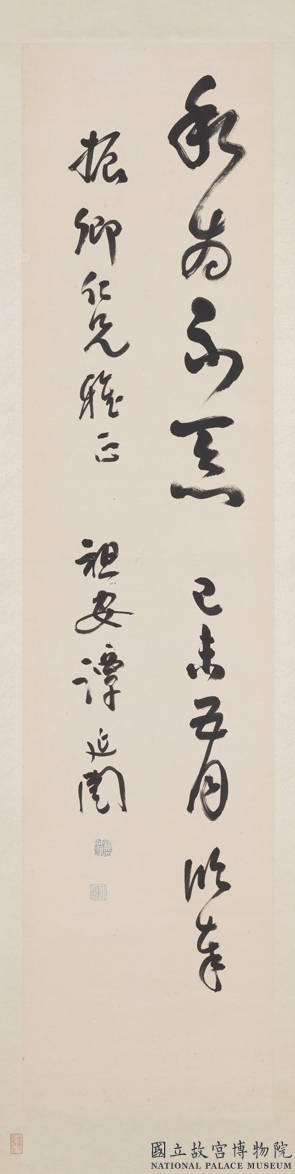 永為不忝己未五月臨奉
振卿仁兄雅正 祖安譚延闓
國立故宮博物院
NATIONAL PALACE MUSEUM